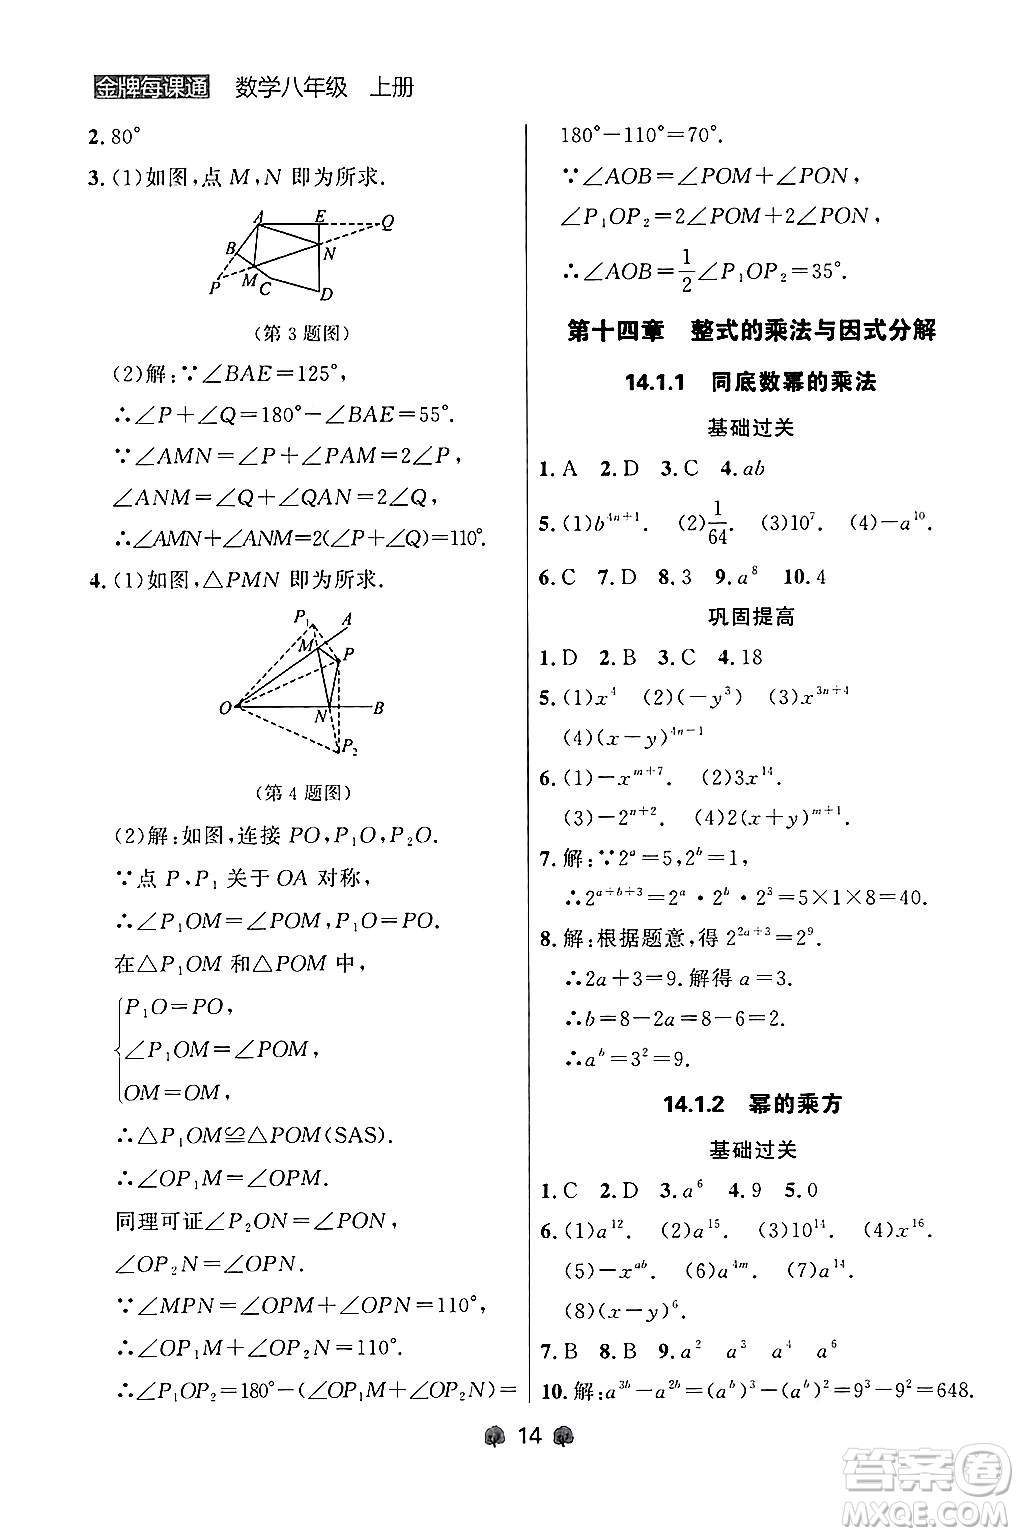 金牌每课通 数学八年级 上册
2. 80°
3. (1)如图,点 M,N 即为所求.
A E Q
B N
P M C D
(第 3 题图)
(2)解:∵∠BAE=125°,
∴∠P+∠Q=180°-∠BAE=55°.
∵∠AMN=∠P+∠PAM=2∠P,
∠ANM=∠Q+∠QAN=2∠Q,
∴∠AMN+∠ANM=2(∠P+∠Q)=110°.
4. (1)如图,△PMN 即为所求.
P₁ A
M P
O N B
P₂
(第 4 题图)
(2)解:如图,连接 PO,P₁O,P₂O.
∵点 P,P₁ 关于 OA 对称,
∴∠P₁OM=∠POM,P₁O=PO.
在△P₁OM 和△POM 中,
P₁O=PO,
∠P₁OM=∠POM,
OM=OM,
∴△P₁OM≌△POM(SAS).
∴∠OP₁M=∠OPM.
同理可证∠P₂ON=∠PON,
∠OP₂N=∠OPN.
∵∠MPN=∠OPM+∠OPN=110°,
∴∠OP₁M+∠OP₂N=110°.
∴∠P₁OP₂=180°-(∠OP₁M+∠OP₂N)=
180°-110°=70°.
∵∠AOB=∠POM+∠PON,
∠P₁OP₂=2∠POM+2∠PON,
∴∠AOB=1/2∠P₁OP₂=35°.
第十四章 整式的乘法与因式分解
14.1.1 同底数幂的乘法
基础过关
1. A 2. D 3. C 4. ab
5. (1)b⁴ⁿ⁺¹. (2)1/64. (3)10⁷. (4)-a¹⁰.
6. C 7. D 8. 3 9. a⁸ 10. 4
巩固提高
1. D 2. B 3. C 4. 18
5. (1)x⁴ (2)(-y³) (3)x³ⁿ⁺⁴
(4)(x-y)⁴ⁿ⁻¹
6. (1)-xᵐ⁺⁷. (2)3x¹⁴.
(3)-2ⁿ⁺². (4)2(x+y)ᵐ⁺¹.
7. 解:∵2ᵃ=5,2ᵇ=1,
∴2ᵃ⁺ᵇ⁺³=2ᵃ·2ᵇ·2³=5×1×8=40.
8. 解:根据题意,得 2²ᵃ⁺³=2⁹.
∴2a+3=9.解得 a=3.
∴b=8-2a=8-6=2.
∴aᵇ=3²=9.
14.1.2 幂的乘方
基础过关
1. C 2. D 3. a⁶ 4. 9 5. 0
6. (1)a¹². (2)a¹⁵. (3)10¹⁴. (4)x¹⁶.
(5)-xᵃᵇ. (6)a⁴ᵐ. (7)a¹⁴.
(8)(x-y)⁶.
7. B 8. B 9. a² a³ a⁴ a⁶
10. 解:a³ᵇ-a²ᵇ=(aᵇ)³-(aᵇ)²=9³-9²=648.
14
答案圈
MXQE.COM